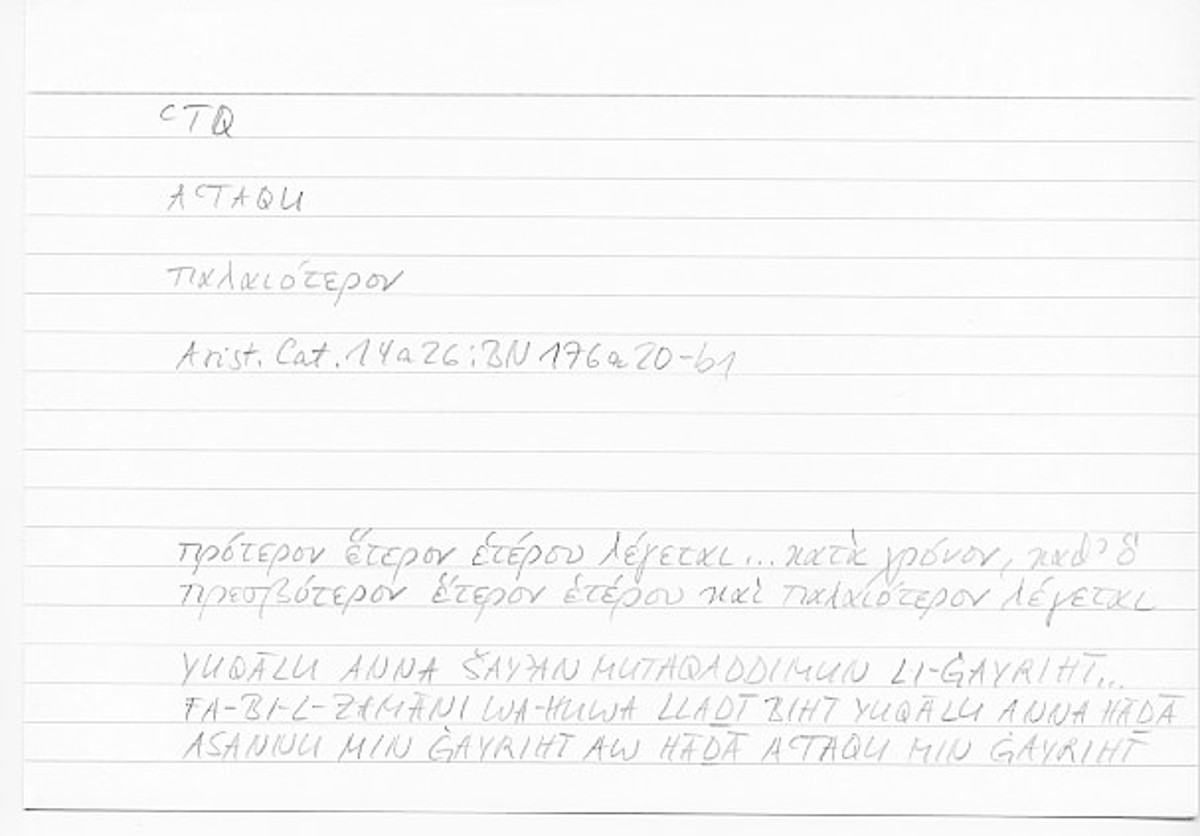 ʿTQ
AʿTAQU
παλαιότερον
Arist. Cat. 14a26; BN 176a20-b1
πρότερον ἕτερον ἑτέρου λέγεται... κατὰ χρόνον, καθ' ὃ
πρεσβύτερον ἕτερον ἑτέρου καὶ παλαιότερον λέγεται
YUQĀLU ANNA ŠAYʾAN MUTAQADDIMUN LI-ĠAYRIHĪ...
FA-BI-L-ZAMĀNI WA-HUWA LLAḎĪ BIHĪ YUQĀLU ANNA HĀḎĀ
ASANNU MIN ĠAYRIHĪ AW HĀḎĀ AʿTAQU MIN ĠAYRIHĪ